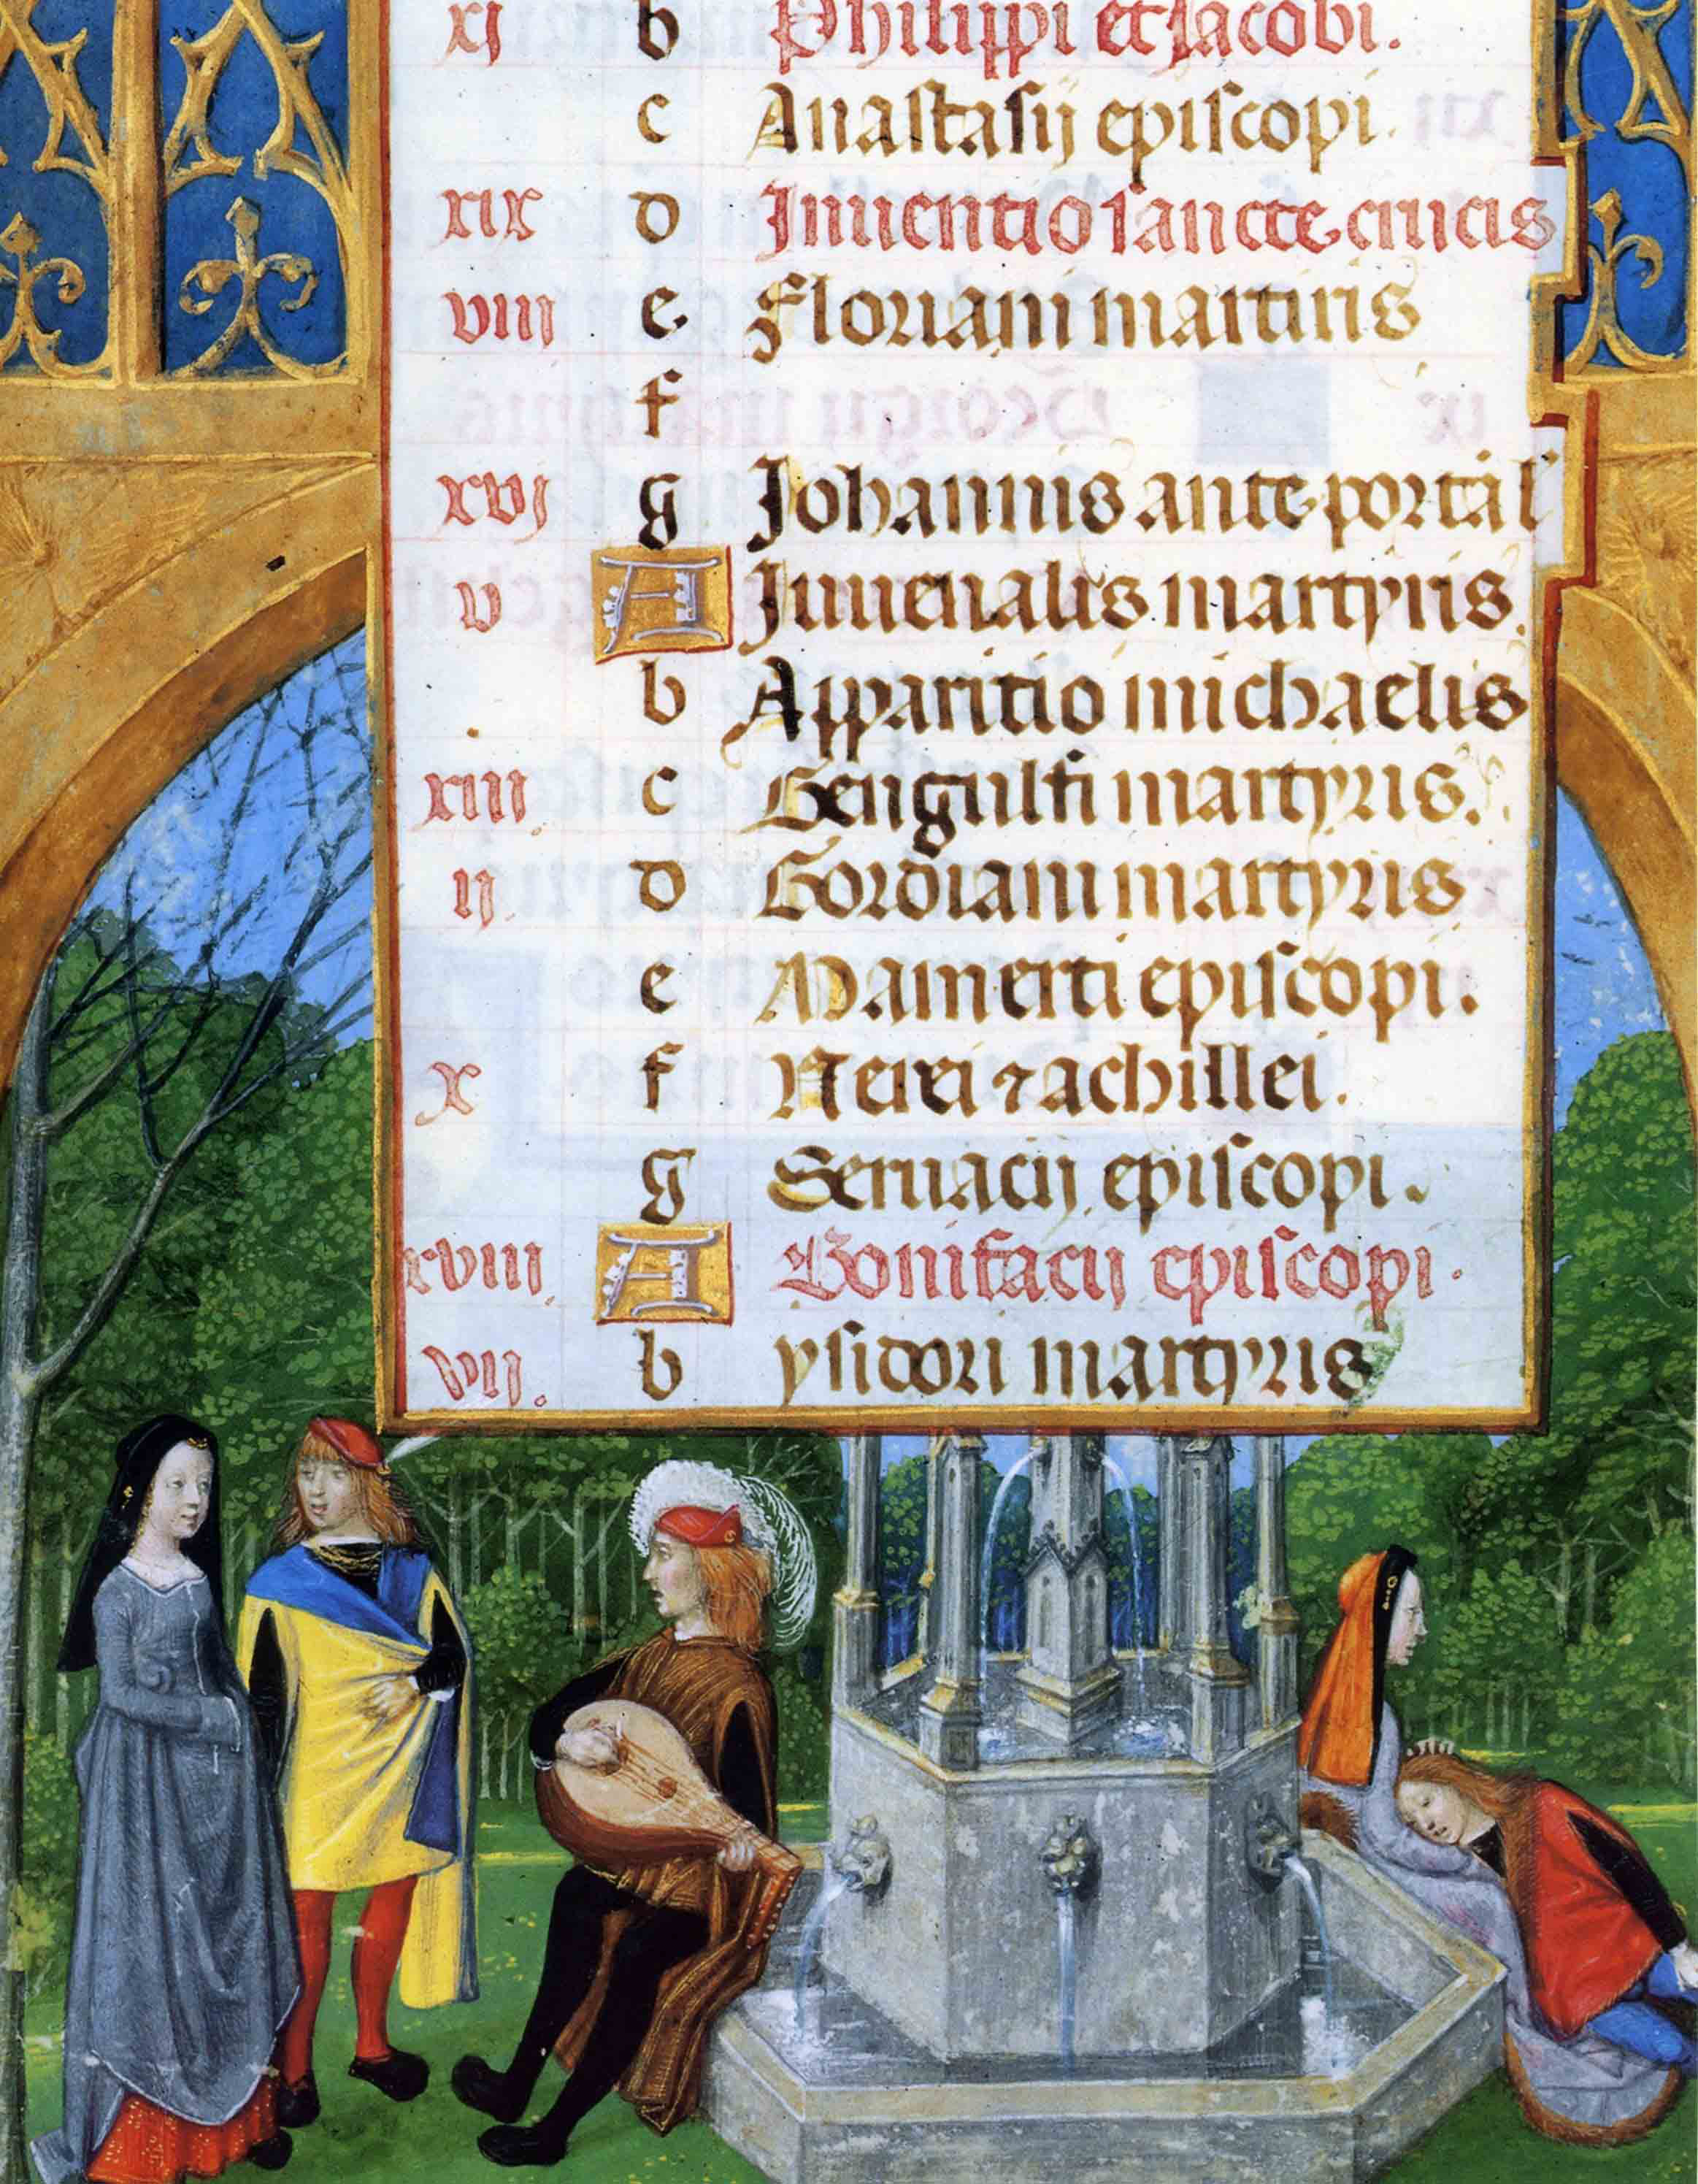 xi b Philippi et Jacobi.
c Anastasij episcopi.
xix d Inuentio sancte crucis
viii e Floriani martiris
f
xvj g Johannis ante portā l'
v A Juuenalis martyris.
b Apparitio michaelis
xiii c Gengulfi martyris.
ij. d Gordiani martyris
e Mamerti episcopi.
x f Nerei ⁊ achillei.
g Seruacij episcopi.
xviii A Bonifacij episcopi.
vij. b ysidori martyris